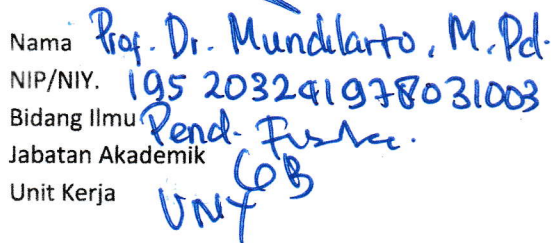 Nama Prof. Dr. Mundilarto, M.Pd.
NIP/NIY. 195203241978031003
Bidang Ilmu Pend. Fisika.
Jabatan Akademik GB
Unit Kerja UNY